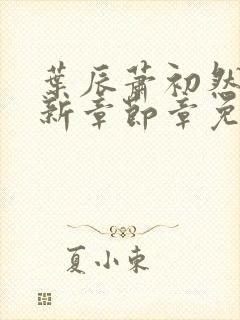 葉辰蕭初然
新章節章免
夏小東